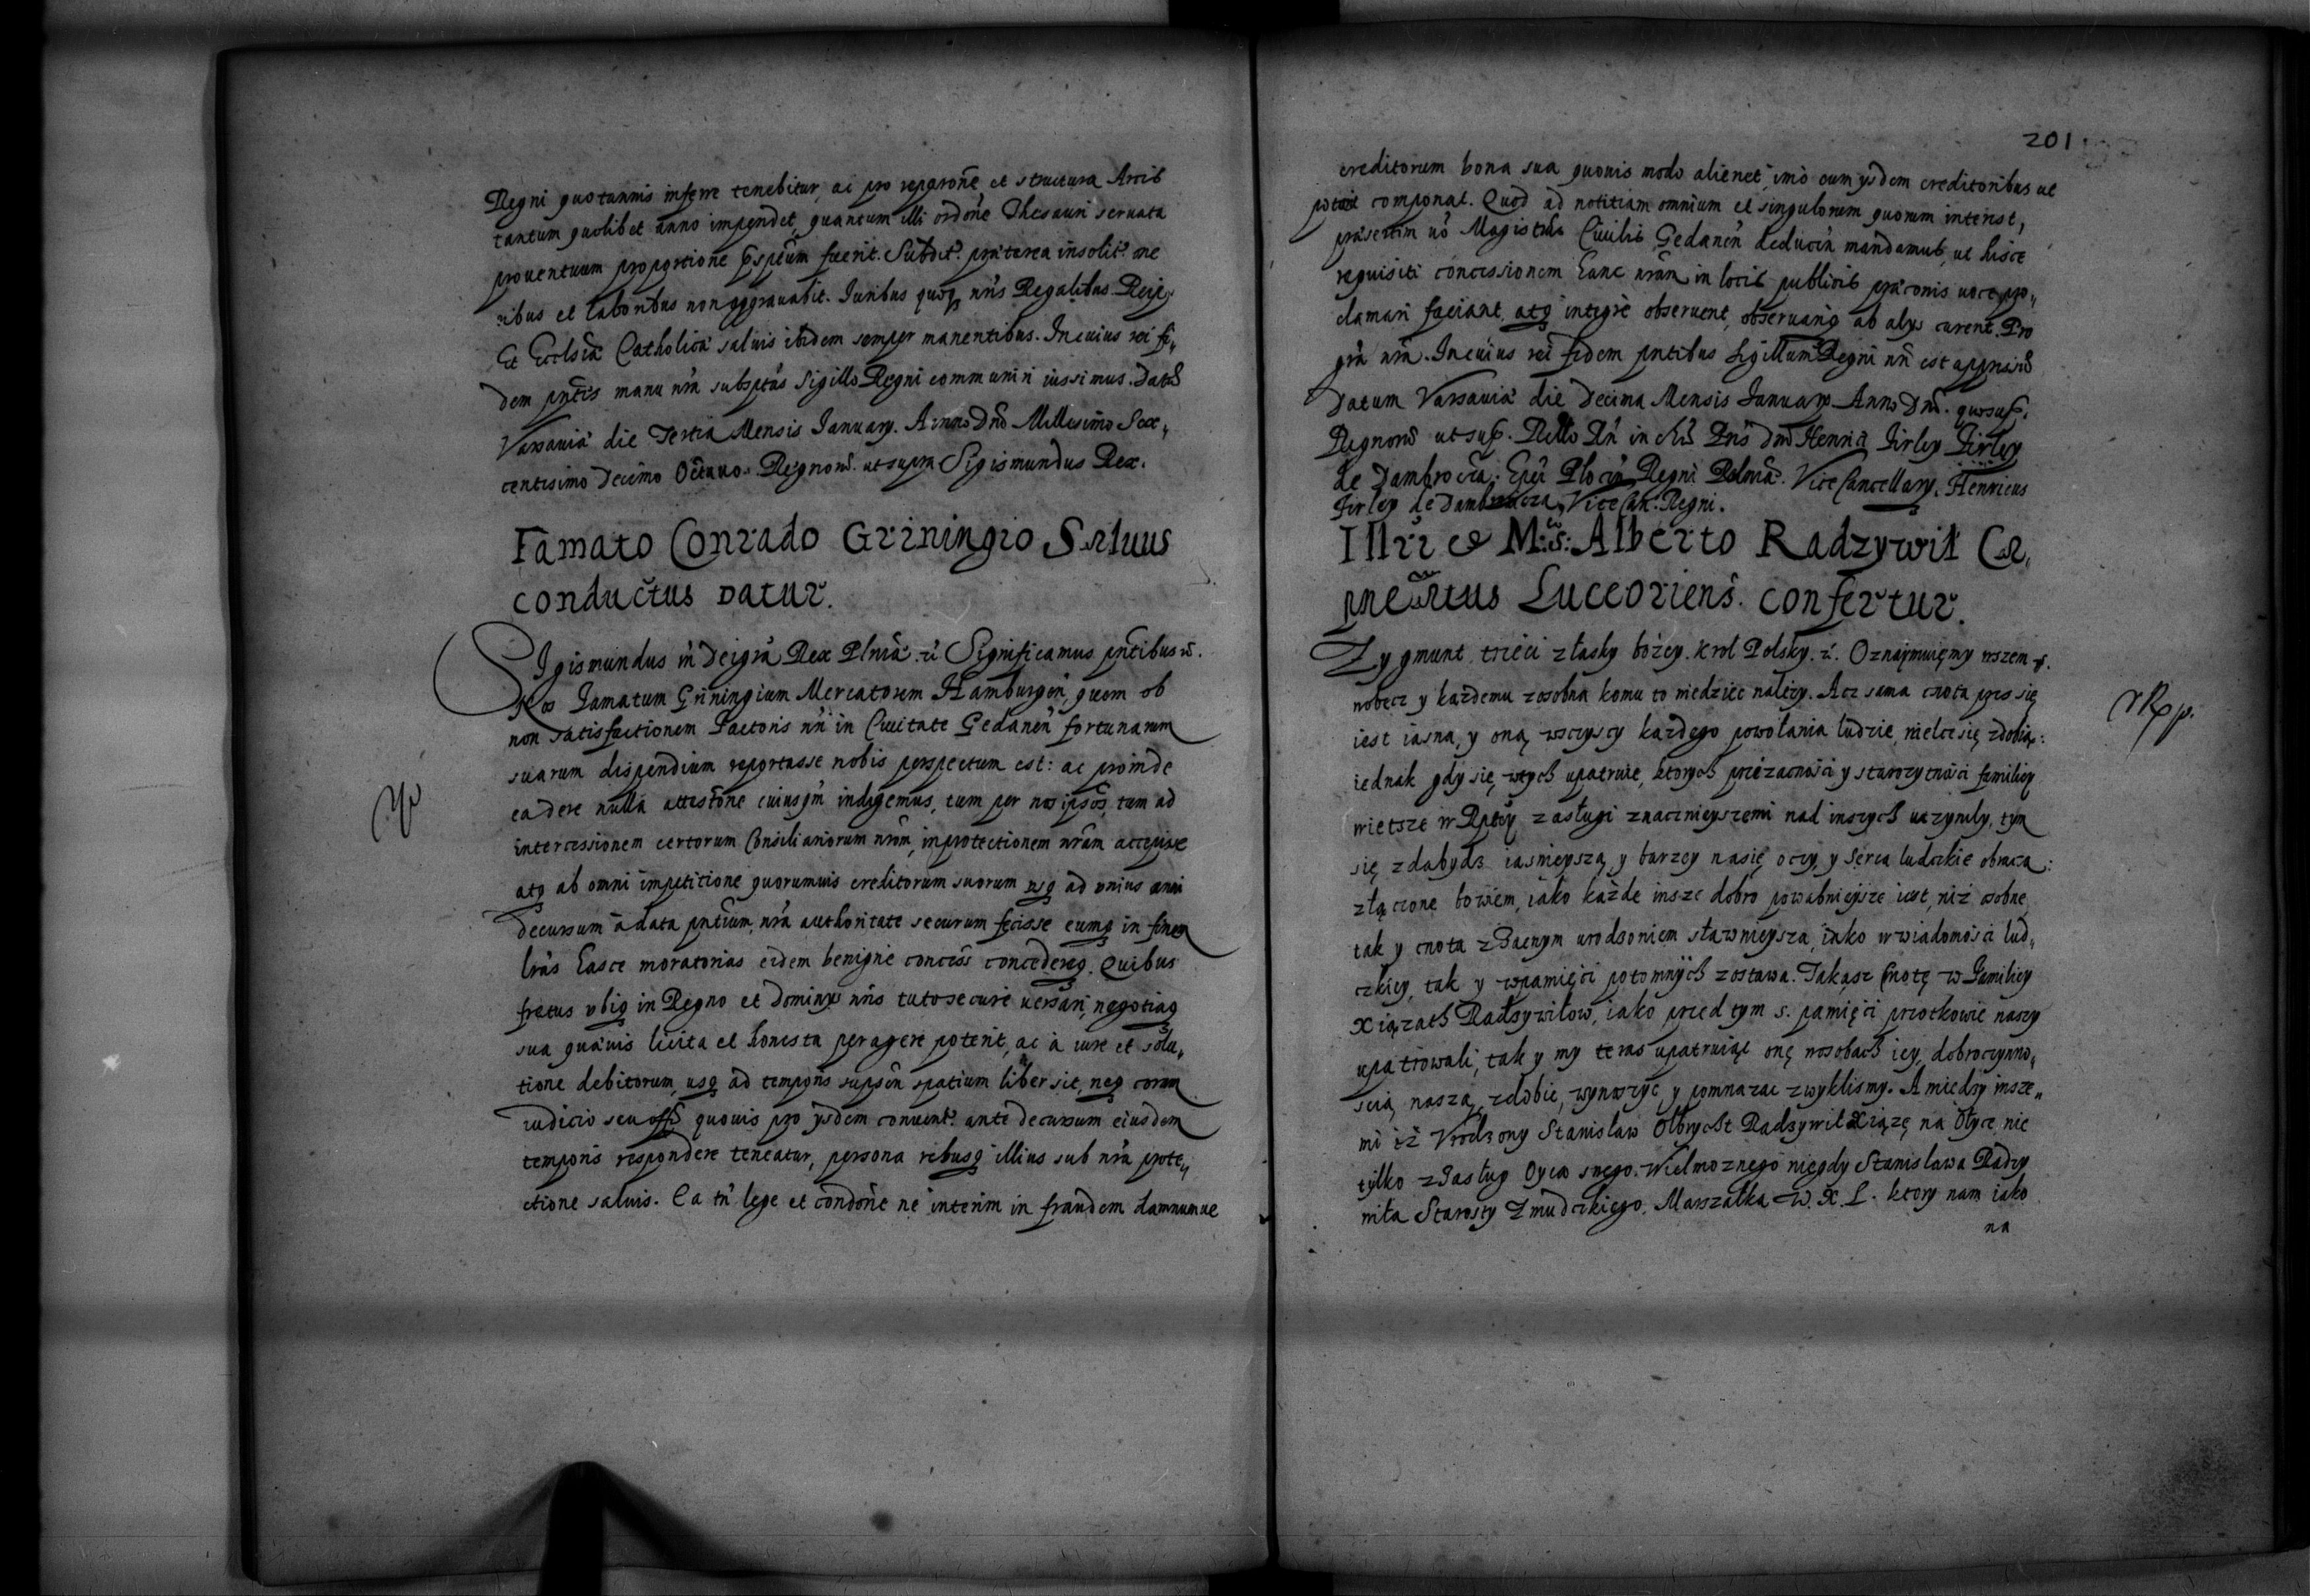 Regni quotannis inferre tenebitur, ac pro reparoñe et structura Arcis
tantum quolibet anno impendet, quantum illi ordoñe Thesauri servata
proventuum proportione fuerit. Subdit. præterea insolit. one
ribus et laboribus non aggravabit. Iuribus quoq nris Regalibus Reip.
Et Ecclsiæ Catholicæ salvis ibidem semper manentibus. In cuius rei fi„
dem pntes manu nra subsptas Sigillo Regni communiri iussimus. Datum
Varsaviæ die Tertia Mensis Ianuarij. Anno Dni Millesimo Sex„
centesimo Decimo Octavo. Regnorum ut supra Sigismundus Rex.
Famato Conrado Griningio Salvus
conductus Datur.
SIgismundus III Dei gra Rex Plniæ. Significamus pntibus
Nos Famatum Griningium Mercatorem Hamburgen, quem ob
non satisfactionem Factoris nri in Civitate Gedanen fortunarum
suarum dispendium reportasse nobis perspectum est: ac proinde
ea de re nulla attestone indigemus, tum per nos ipsos, tum ad
intercessionem certorum Consiliariorum nrom, in protectionem nram accepisse
atq ab omni impetitione quorumvis creditorum suorum usq ad unius anni
decursum a data pntium, nra authoritate securum fecisse eumq in finem
lras hasce moratorias eidem benigne concess concedereq. Quibus
fretus ubiq in Regno et dominys nris tuto secure versari, negotiaq
sua quævis licita et honesta peragere poterit, ac a iure et solu„
tione debitorum, usq ad temporis supscri spatium liber sit, neq coram
iudicio seu offi quovis pro ysdem convent. ante decursum eiusdem
temporis respondere teneatur, persona rebusq illius sub nra prote„
ctione salvis. Ea tn lege et condoñe ne interim in fraudem damnumve
201
creditorum bona sua quovis modo alienet, imo cum ysdem creditoribus ut
poterit componat. Quod ad notitiam omnium et singulorum quorum interest,
præsertim vo Magistrus Civilis Gedanen deducen mandamus, ut hisce
requisiti concessionem hanc nram in locis publicis præconis voce pro„
clamari faciant, atq integre observent, observariq ab alys curent. Pro
gra nra. In cuius rei fidem pntibus Sigillum Regni nri est appressum
Datum Varsaviæ die Decima Mensis Ianuary Anno Dni. quo sup.
Regnorum ut sup. Rello Rñ in chro Pris Dni Henrici Firley Firley
de Dambrovica. Epi Plocen Regni Polniæ. Vice Cancellary. Henricus
Firley de Dambrovica, Vice Can. Regni.
Illri et M:s: Alberto Radzywił Ca„
pneatus Luceoriens. confertur.
Zygmunt trzeci z łasky bożey. Krol Polsky. Oznaymuięmy wszem w.
nobecz y każdemu zosobna komu to wiedziec należy. Acz sama cnota przs się
iest iasna, y oną wszyscy każdego powołania ludzie, wielce się zdobią:
iednak gdy się wtych upatruie, ktorych przezacności y starozytności familiey
wietsze w Rptey zasługi znacznieyszemi nad inszych uczyniły, tym
się zdabyds iasnieyszą, y barzey nasię oczy, y serca ludzkie obraca:
złączone bowiem, iako każde insze dobro powabnieysze iest, niż osobne,
tak y cnota z Zacnym urodzeniem sławnieysza, iako w wiadomości lud„
zkiey, tak y wpamięci potomnych zostawa. Takąsz Cnotę w Familiey
Xiązath Radzywiłow, iako przed tym s. pamięci przotkowie naszy
upatrowali, tak y my teras upatruiąc onę wosobach iey, dobroczynno„
scią naszą zdobic, wynoszyc y pomnazac zwyklismy. A miedzy insze„
mi iż Vrodzony Stanisław Olbrycht Radzywił Xiążę na Ołyce, nie
tylko z Zasług Oyca swego. Wielmoznego niegdy Stanisława Radzy
wiła Starosty Zmudzkiego. Marszałka W. X. L. ktory nam iako
na